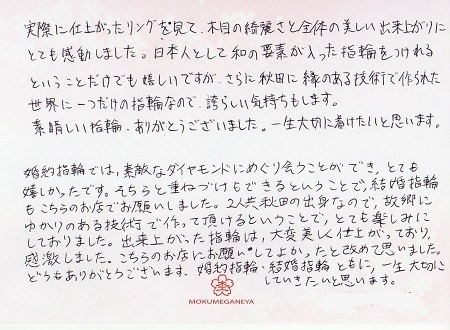 実際に仕上がったリングを見て、木目の綺麗さと全体の美しい出来上がりに
とても感動しました。日本人として和の要素が入った指輪をつけれる
ということだけでも嬉しいですが、さらに秋田に縁のある技術で作られた
世界に一つだけの指輪なので、誇らしい気持ちもします。
素晴しい指輪、ありがとうございました。一生大切に着けたいと思います。
婚約指輪では、素敵なダイヤモンドにめぐり会うことができ、とても
嬉しかったです。そちらと重ねづけもできるということで、結婚指輪
もこちらのお店でお願いしました。2人共秋田の出身なので、故郷に
ゆかりのある技術で作って頂けるということで、とても楽しみに
しておりました。出来上がった指輪は、大変美しく仕上がっており、
感激しました。こちらのお店にお願いしてよかったと改めて思いました。
どうもありがとうございます。婚約指輪・結婚指輪ともに、一生大切に
していきたいと思います。
MOKUMEGANEYA